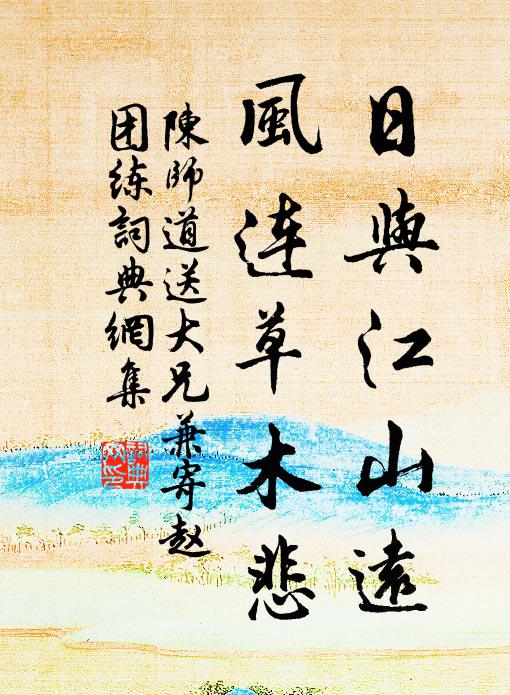 日與江山遠
風連草木悲
陳師道送大兄兼寄趙
团练詞典網集